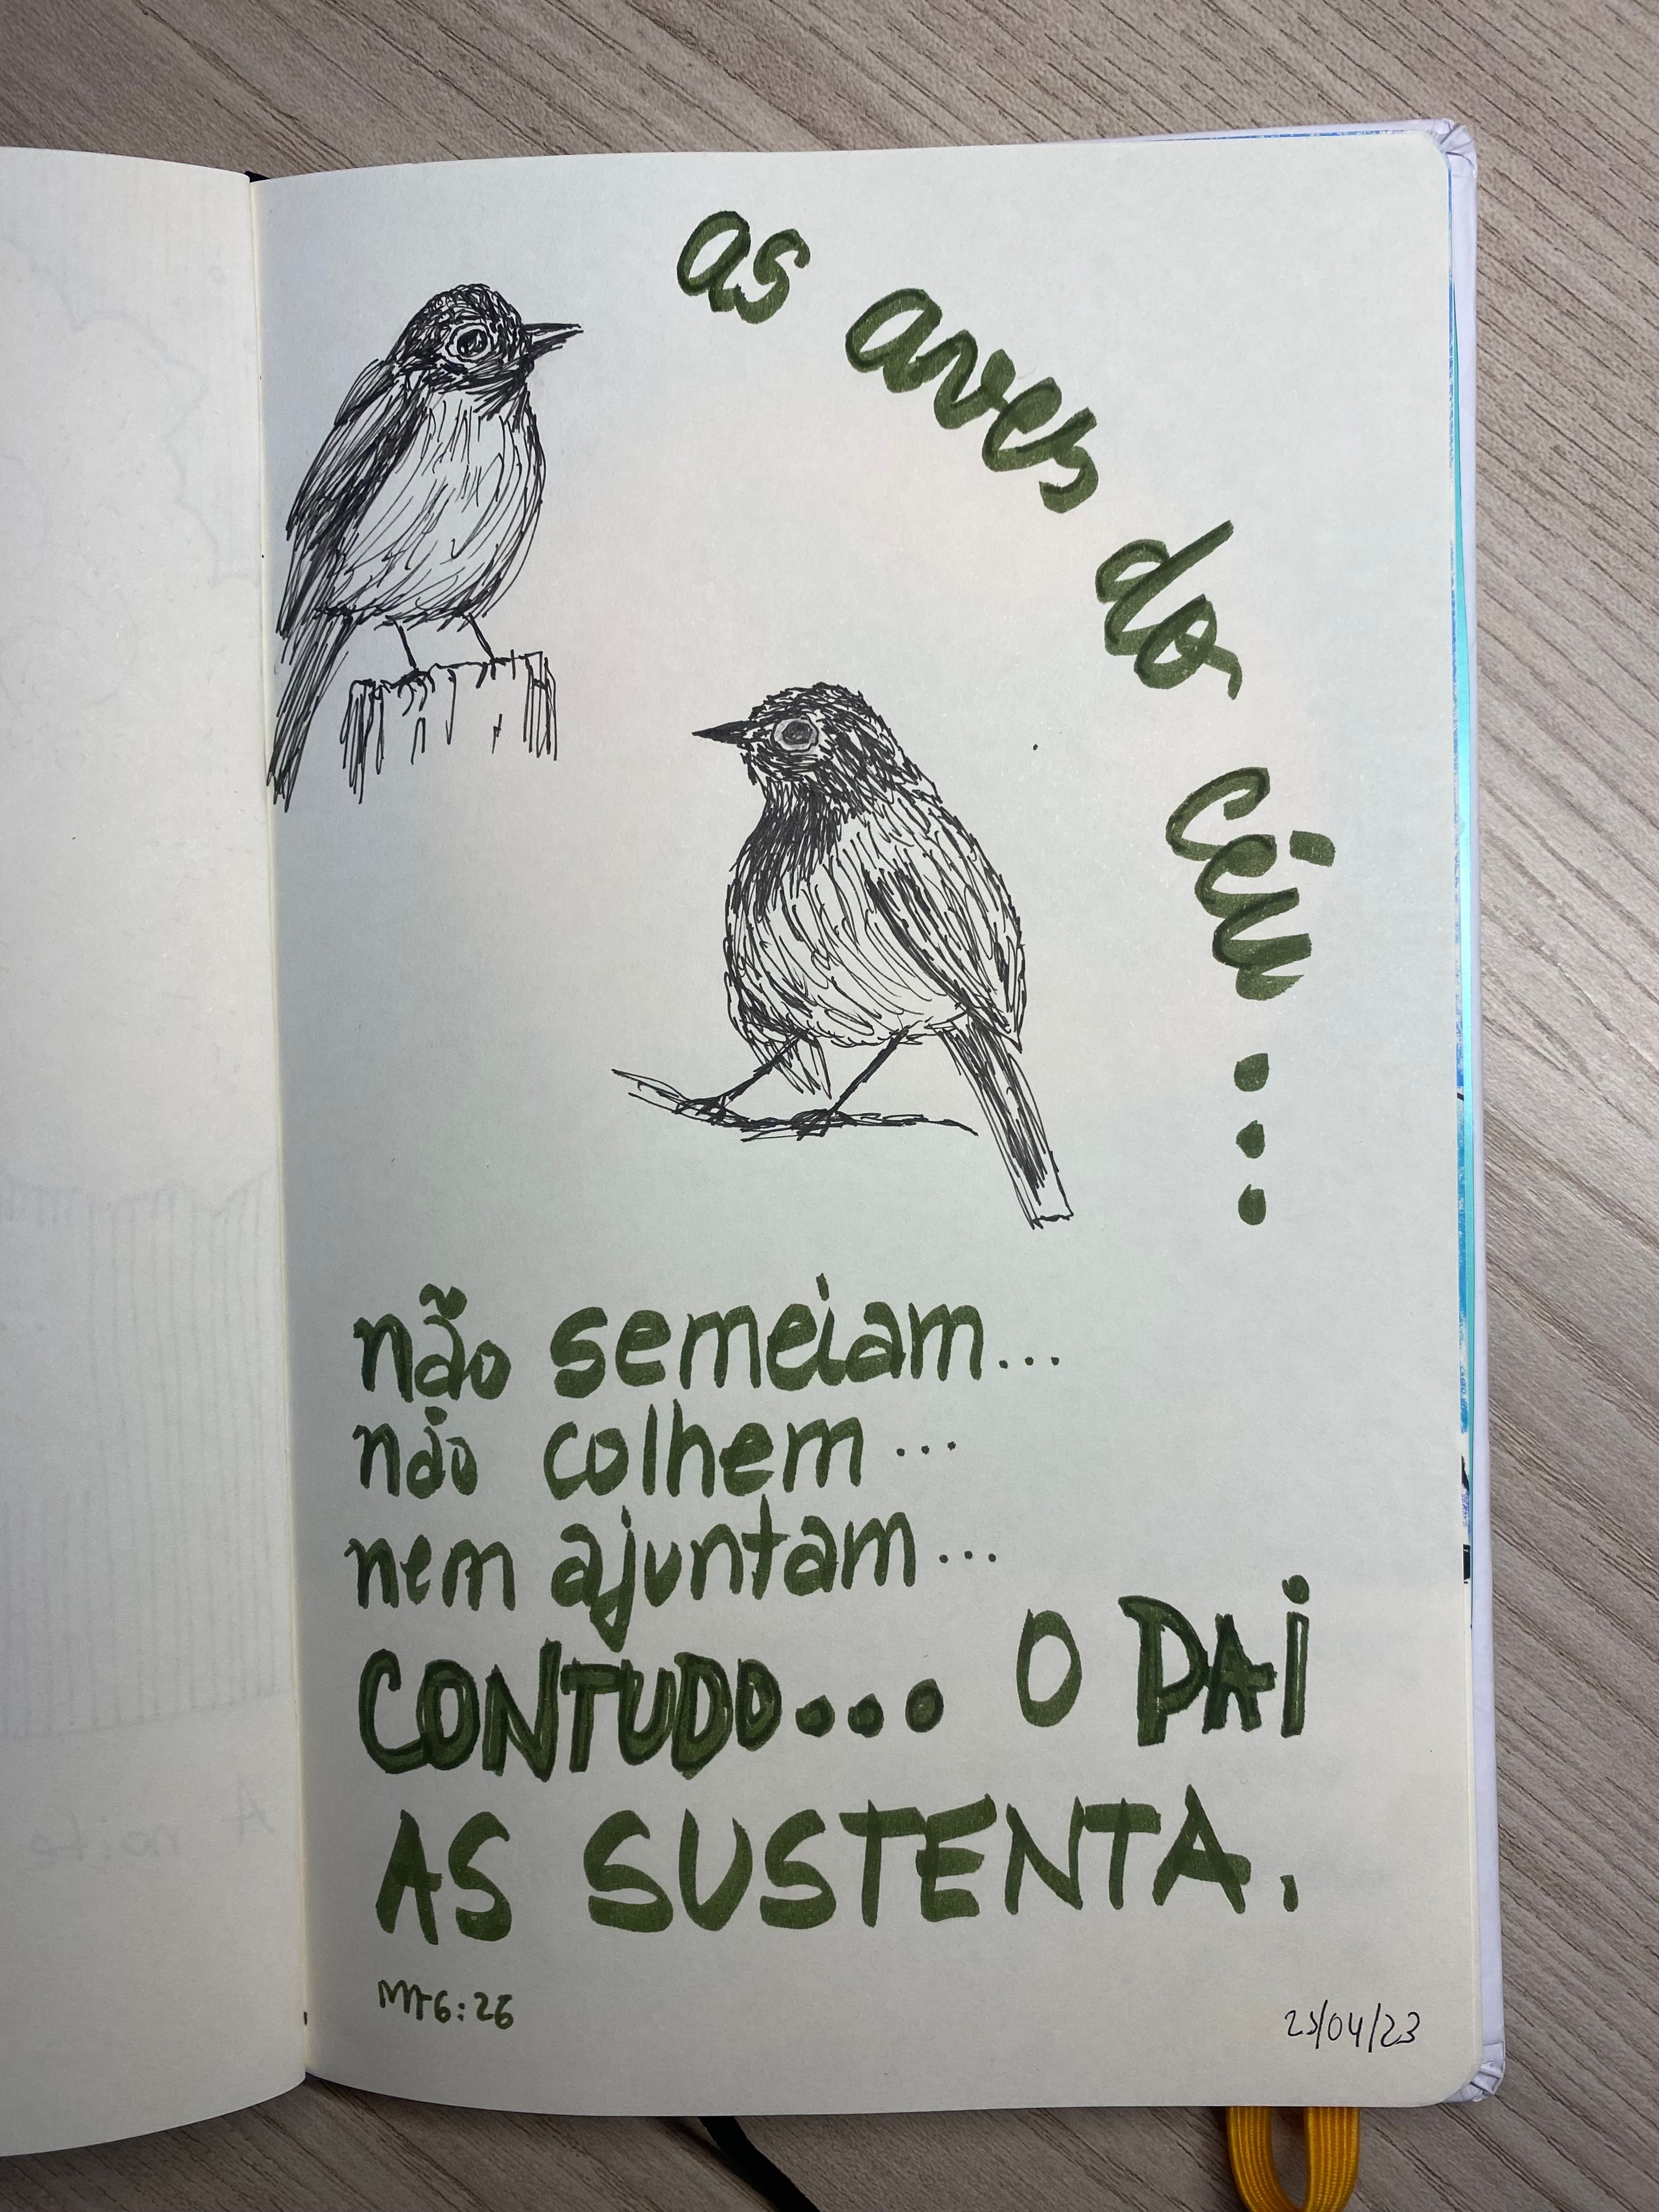 as aves do céu...
não semeiam...
não colhem...
nem ajuntam...
CONTUDO... O PAi
AS SUSTENTA.
Mt 6:26
A
noite